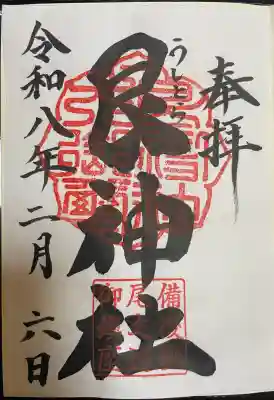 奉拝
うしとら
艮神社
令和八年二月六日
備
尾